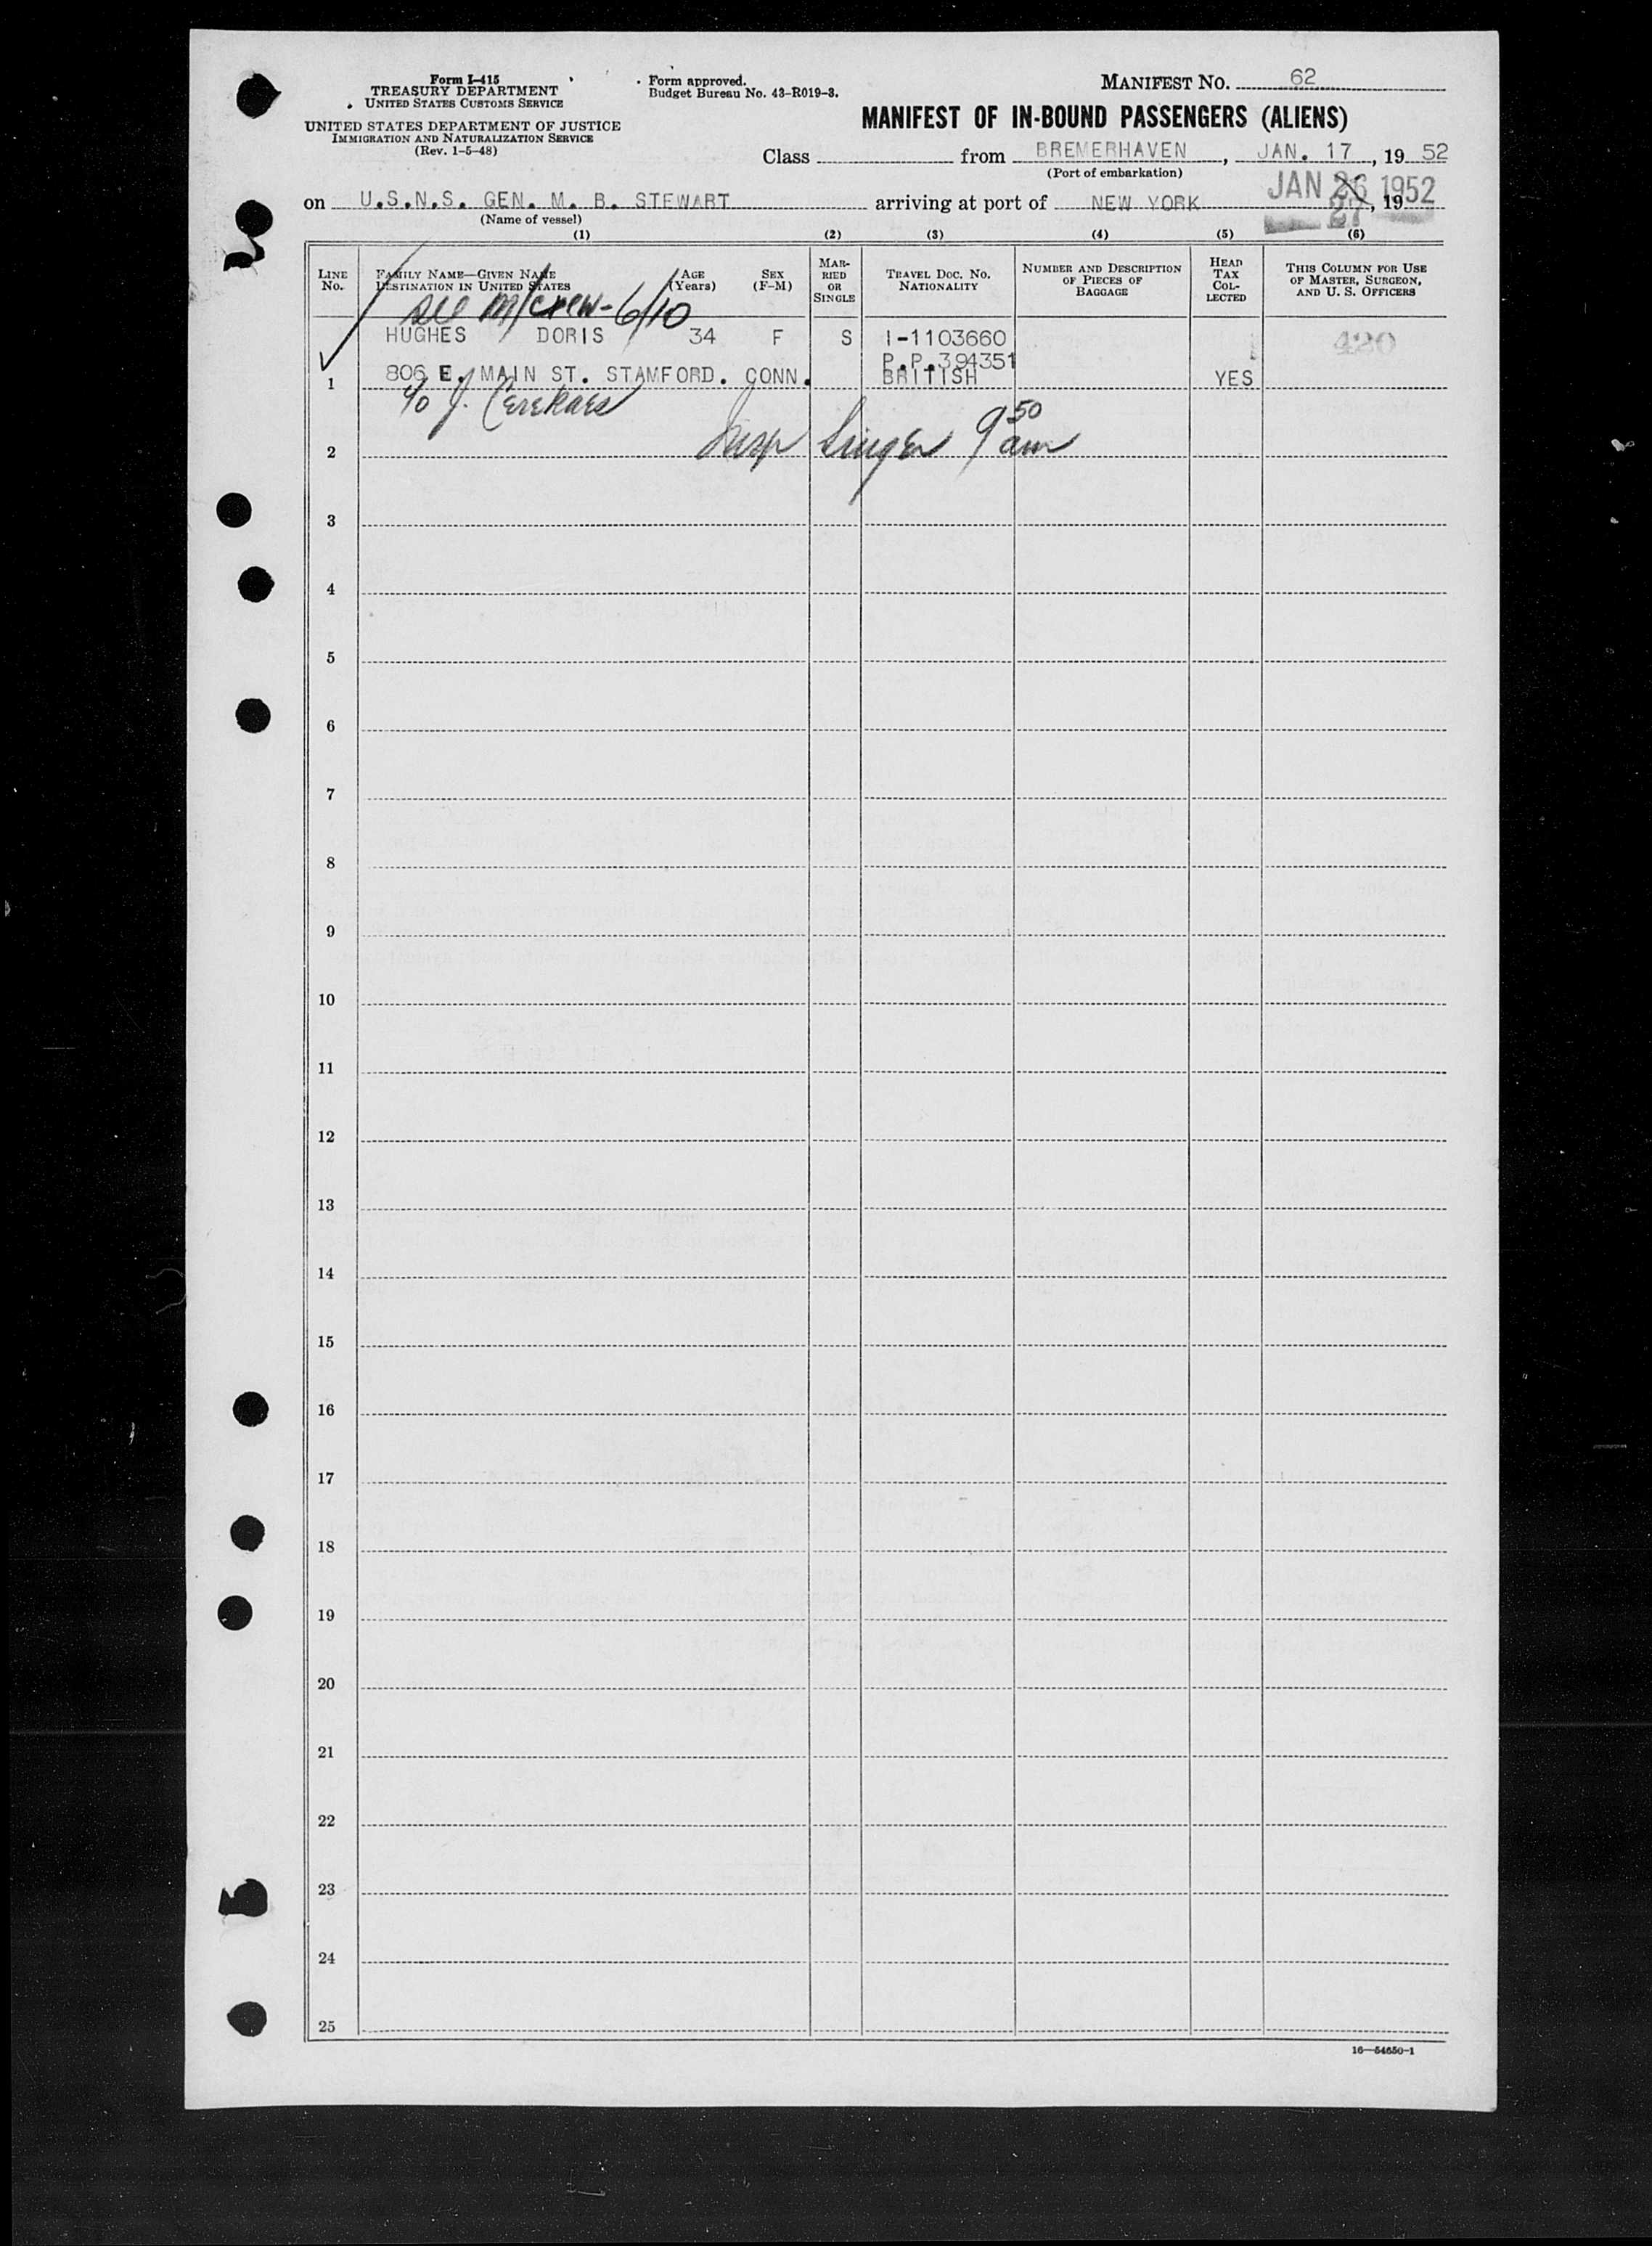 Form I-415
TREASURY DEPARTMENT
UNITED STATES CUSTOMS SERVICE
UNITED STATES DEPARTMENT OF JUSTICE
IMMIGRATION AND NATURALIZATION SERVICE
(Rev. 1-5-48)
Form approved.
Budget Bureau No. 43-R019-3.
MANIFEST NO. 62
MANIFEST OF IN-BOUND PASSENGERS (ALIENS)
Class from BREMERHAVEN, JAN. 17, 19 52
(Port of embarkation)
on U.S.N.S. GEN. M. B. STEWART arriving at port of NEW YORK JAN 26 1952, 19
27
(Name of vessel)
(1) (2) (3) (4) (5) (6)
LINE No.
FAMILY NAME—GIVEN NAME
DESTINATION IN UNITED STATES
AGE (Years)
SEX (F-M)
MARRIED OR SINGLE
TRAVEL DOC. NO.
NATIONALITY
NUMBER AND DESCRIPTION OF PIECES OF BAGGAGE
HEAD TAX COLLECTED
THIS COLUMN FOR USE OF MASTER, SURGEON, AND U. S. OFFICERS
see m/crew-6/10
HUGHES DORIS 34 F S I-1103660 420
P.P.394351
1 806 E. MAIN ST. STAMFORD. CONN. BRITISH YES
c/o J.
2 Insp Singer 9 50 am
3
4
5
6
7
8
9
10
11
12
13
14
15
16
17
18
19
20
21
22
23
24
25
16—54650-1